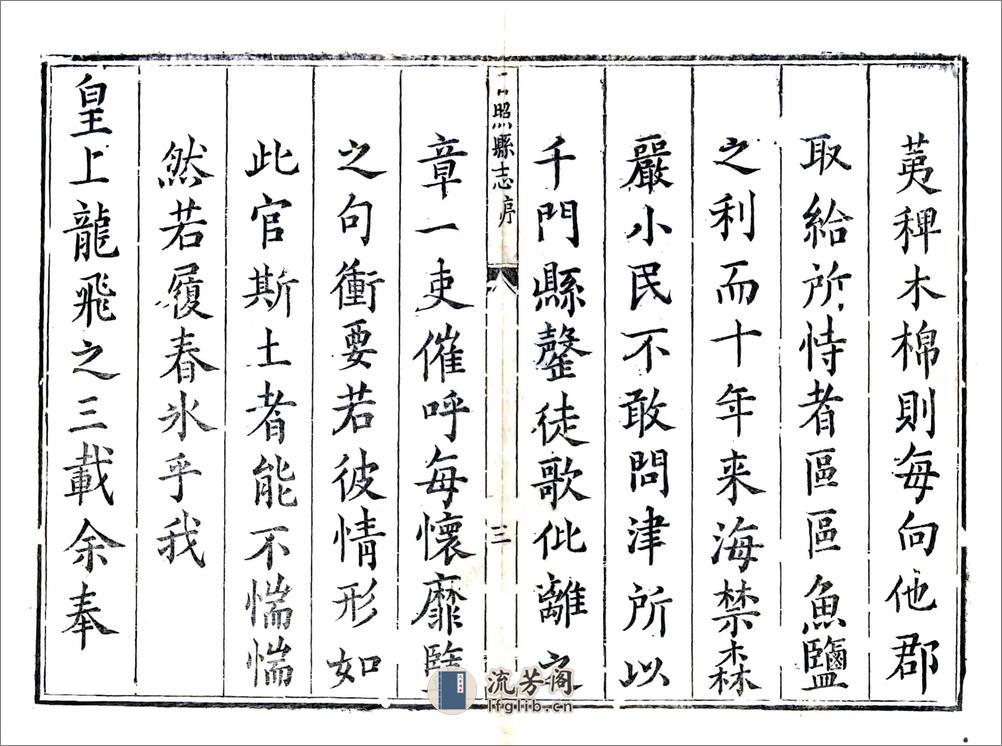 荑稗木棉則每向他郡
取給所恃者區區魚鹽
之利而十年来海禁森
嚴小民不敢問津所以
千門縣罄徒歌仳離之
日照縣志序
三
章一吏催呼每懷靡
之句衝要若彼情形如
此官斯土者能不惴惴
然若履春氷乎我
皇上龍飛之三載余奉
流芳阁
lfglib.cn